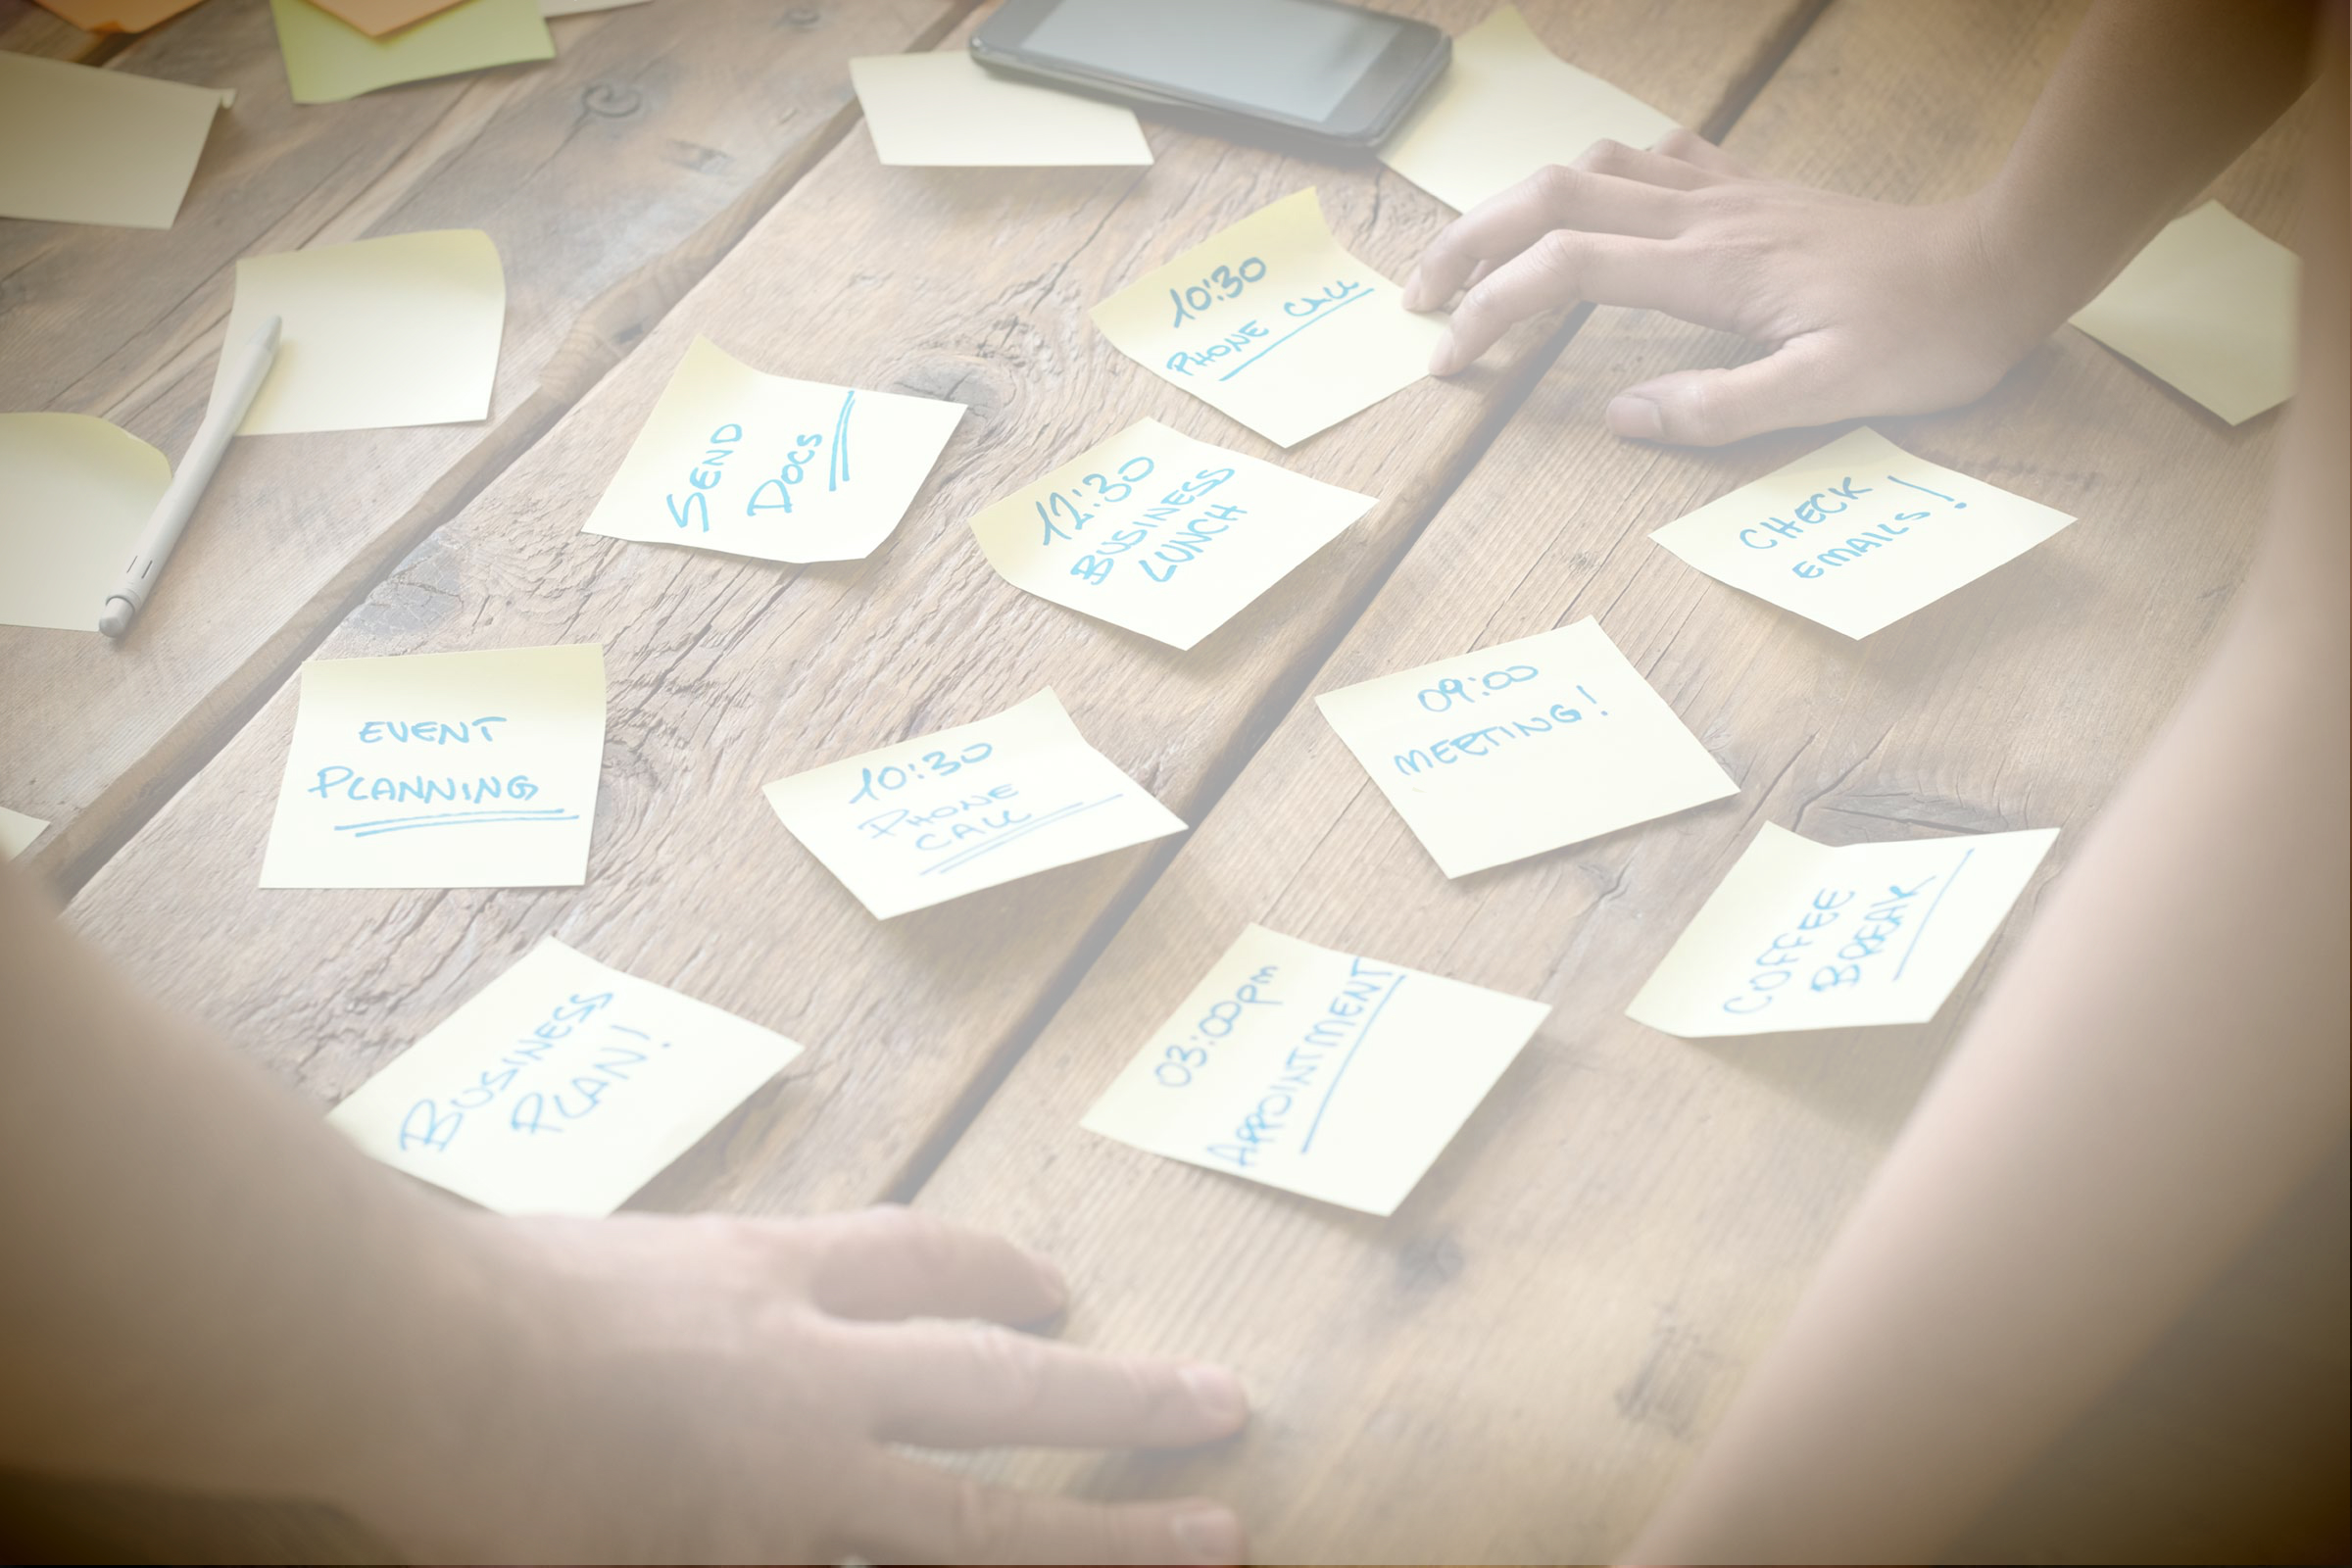 10:30
PHONE CALL
SEND
DOCS
12:30
BUSINESS
LUNCH
CHECK
EMAILS!
EVENT
PLANNING
10:30
PHONE
CALL
09:00
MEETING!
COFFEE
BREAK
BUSINESS
PLAN!
03:00pm
APPOINTMENT